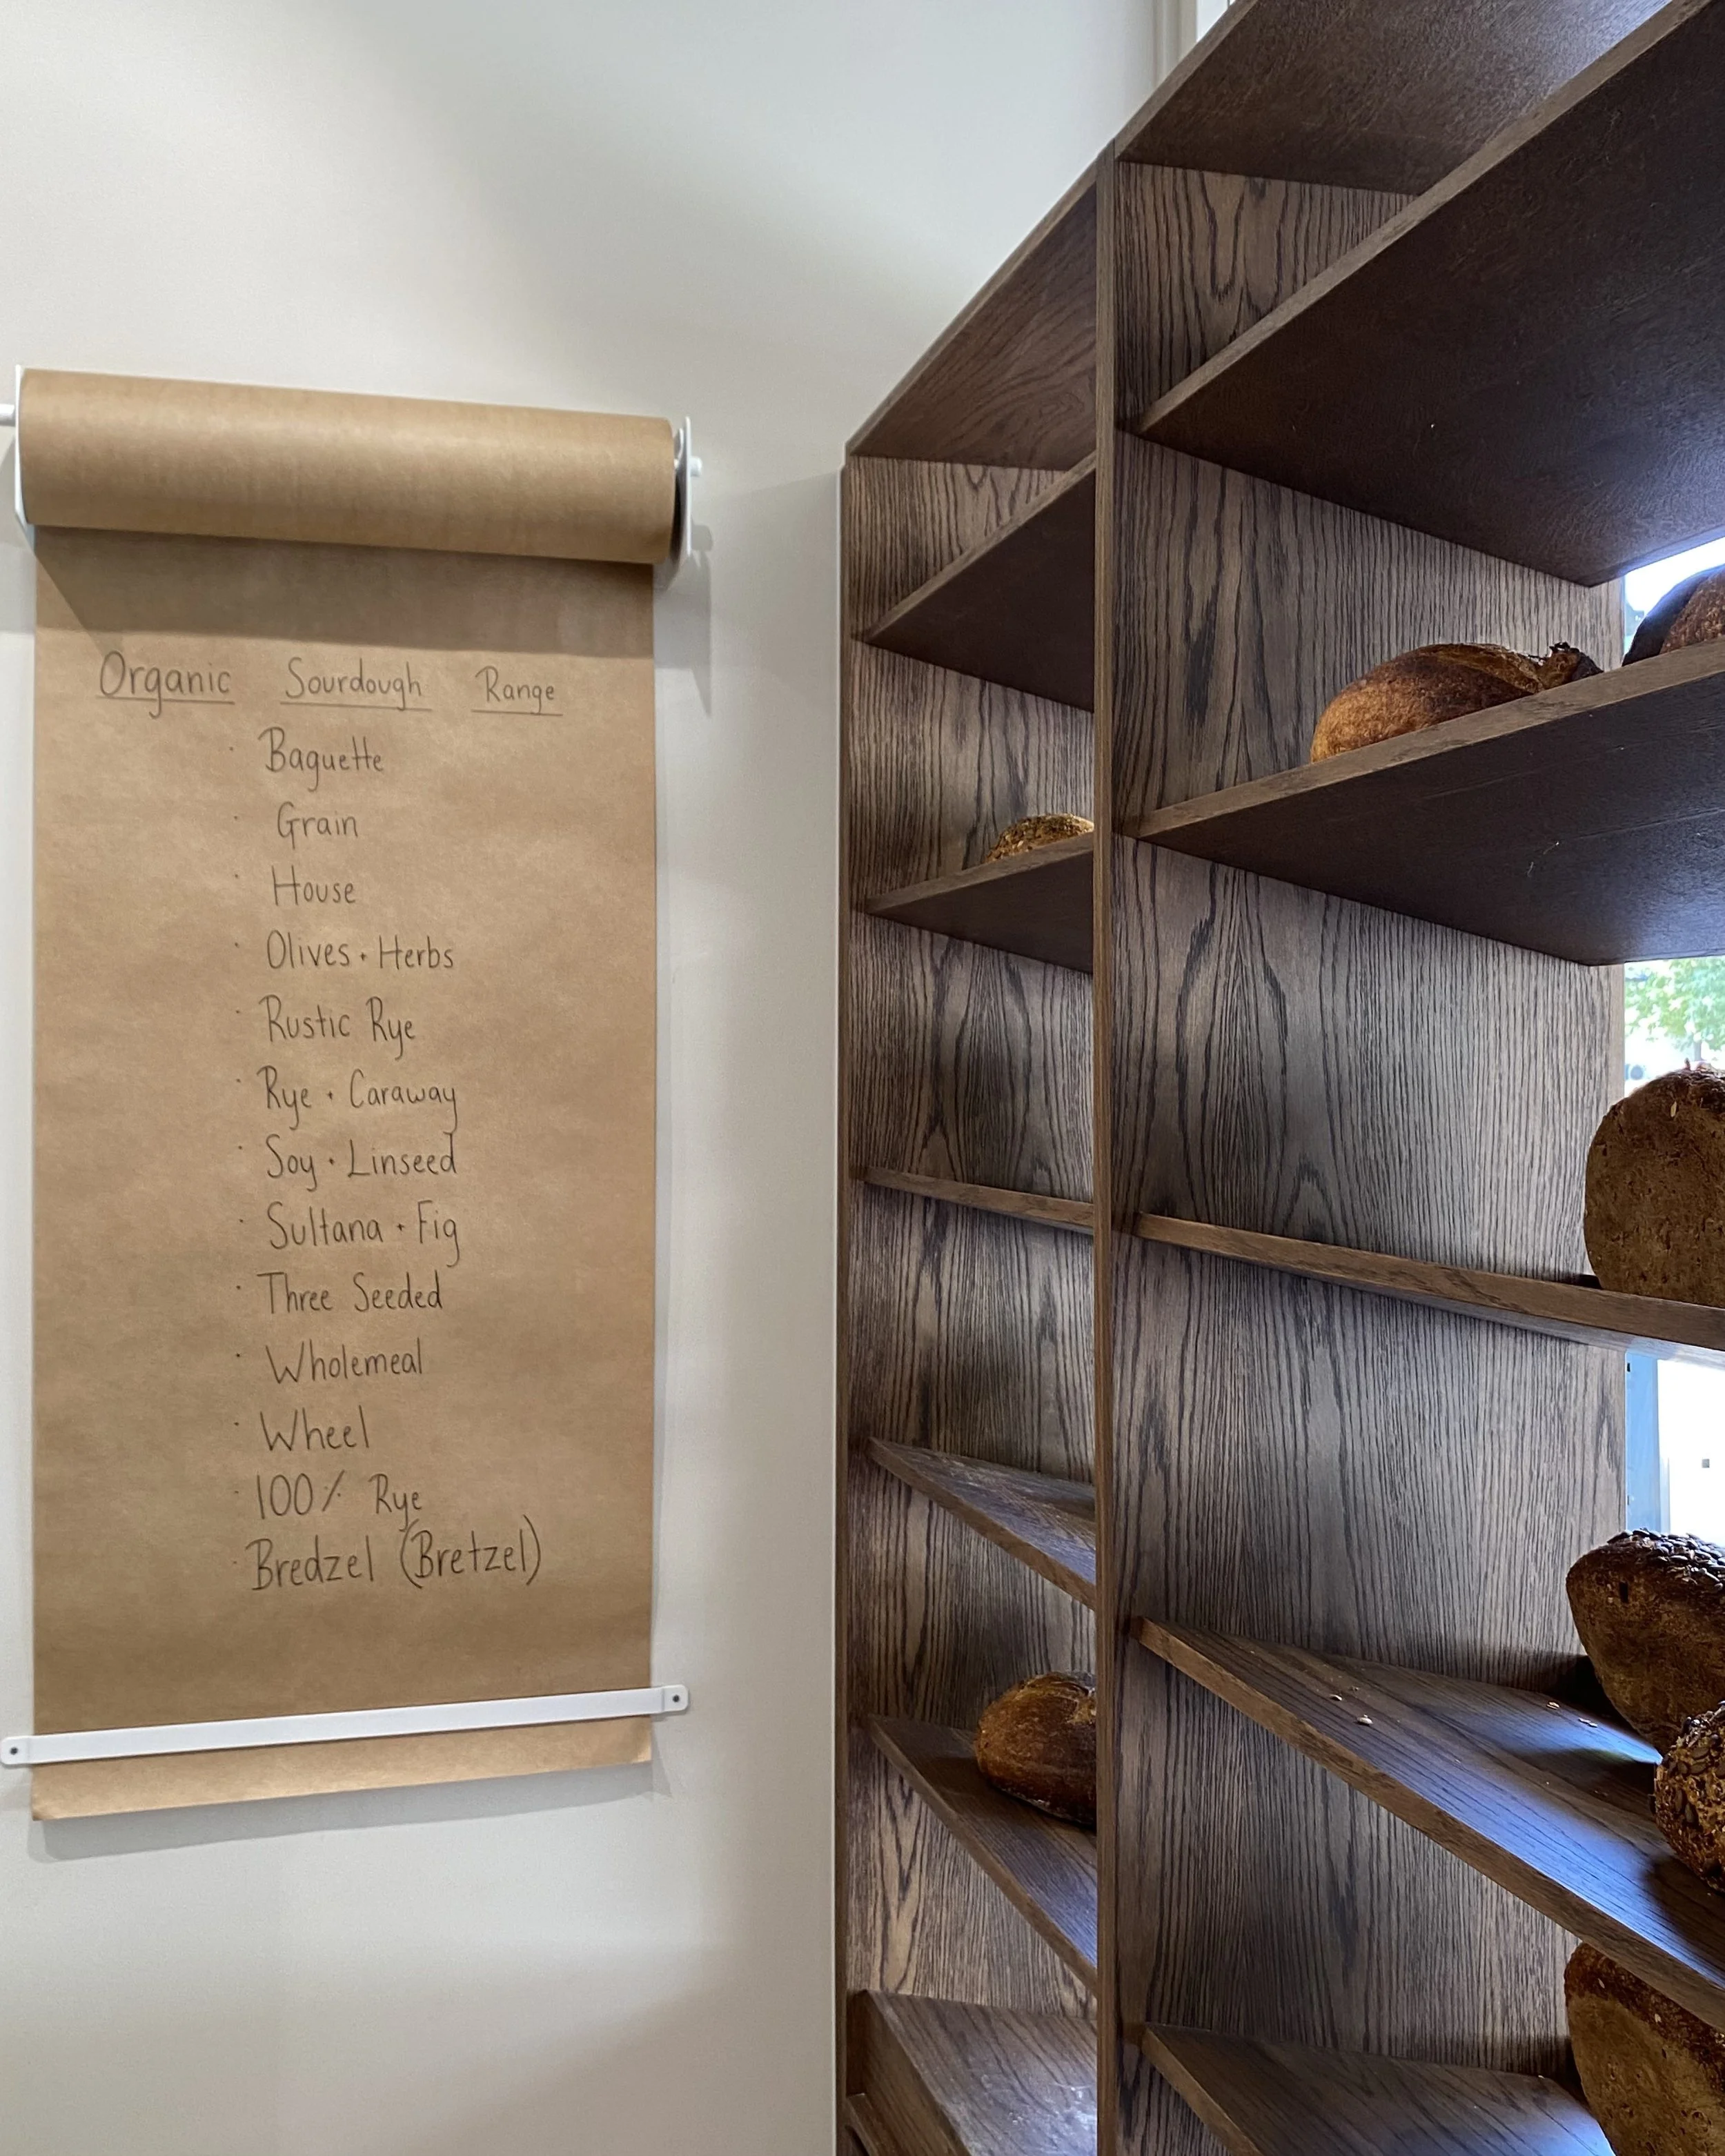 Organic Sourdough Range
· Baguette
· Grain
· House
· Olives + Herbs
· Rustic Rye
· Rye + Caraway
· Soy + Linseed
· Sultana + Fig
· Three Seeded
· Wholemeal
· Wheel
· 100% Rye
· Bredzel (Bretzel)